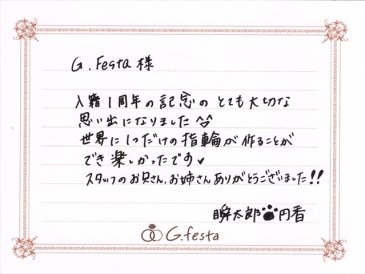 G.Festa 様
入籍1周年の記念のとても大切な
思い出になりました^^
世界に1つだけの指輪が作ることが
でき楽しかったです♥
スタッフのお兄さん、お姉さんありがとうございました!!
瞬太郎🐾円香
G.festa